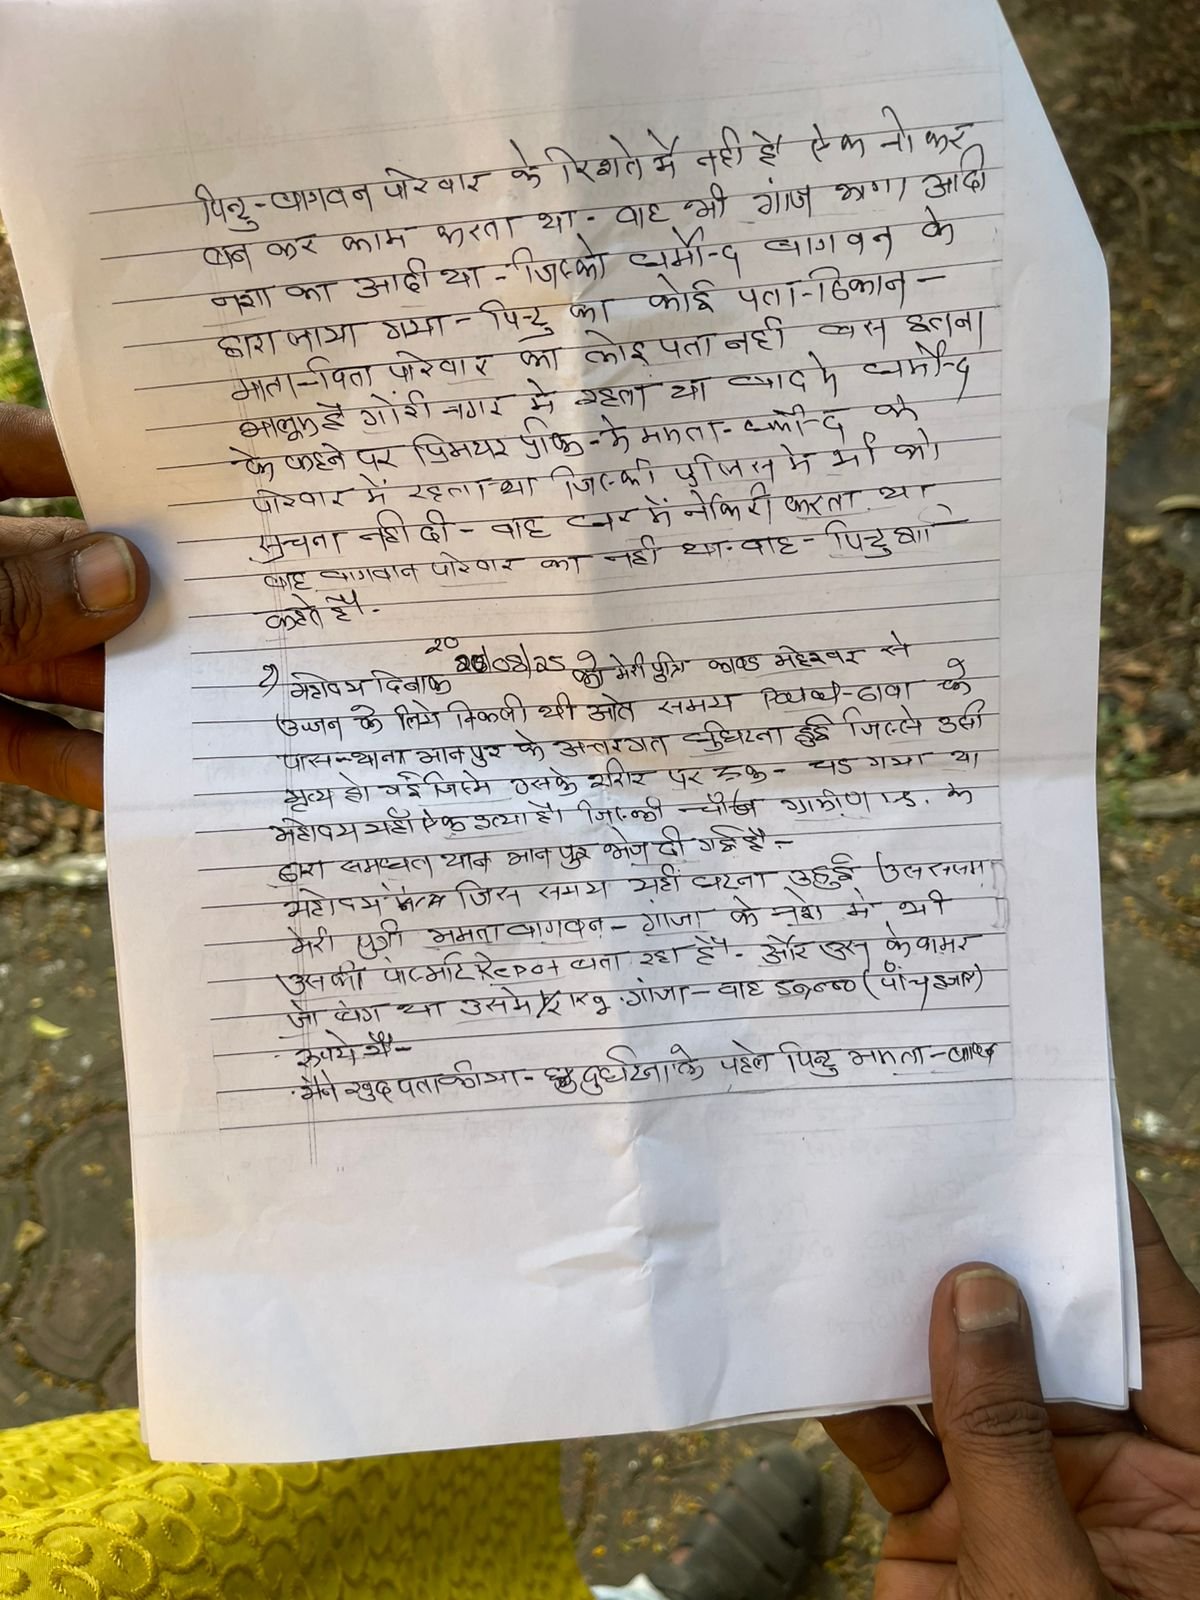 पिन्टु-बागवन परिवार के रिशते में नही है ऐक नोकर
बन कर काम करता था - वाह भी गांज भागा आदी
नशा का आदी था - जिस्को धर्मेन्द बागवन के
द्वारा लाया गया - पिन्टु का कोई पता-ठिकान -
माता-पिता परिवार का कोइ पता नही बस इतना
मालूम है गोरी नगर मे रहता था बाद मे धर्मेन्द
के कहने पर प्रिमयर ममता-धर्मेन्द के
परिवार में रहता था जिस्की पुलिस मे भी को
सुचना नही दी - वाह घर में नोकिरी करता था
वाह बागवान परिवार का नही था - वाह - पिन्टु
कहते है -
महोदय दिनाक 20/08/25 को मेरी पुत्रि कावड महेश्वर से
उज्जन के लिये निकली थी ओत समय ढाबा के
पास थाना मानपुर के अन्तरगत दुर्घटना हुई जिस्से उसी
मृत्य हो गई जिस्मे उसके शरीर पर ट्रक - चड गया था
महोदय यहाँ ऐक हत्या है। जिस्की ग्रामीण के
द्वारा समबंधत थाना मानपुर भेज दी गई है -
महोदय जिस समय यहाँ घटना हुई उस समय
मेरी पुत्री ममता बागवन - गांजा के नशे में थी
उसकी पोस्टमार्ट Repot बता रहा है - और उस के कामर
जो बेग था उसमे 1/2 kg गांजा - वाह 5000 (पाँच हजार)
रुपये थे -
मैने खुद पता कीया - दुर्घटना के पहले पिन्टु ममता -